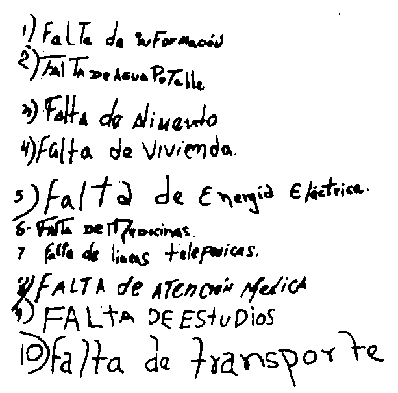 1) Falta de informacion
2) Falta de Agua Potable
3) Falta de Alimento
4) falta de vivienda.
5) falta de Energia Eléctrica.
6- Falta De Medicinas.
7 falta de lineas telefonicas.
8) FALTA de ATENCION MEDICA
9) FALTA DE ESTUDIOS
10) falta de transporte